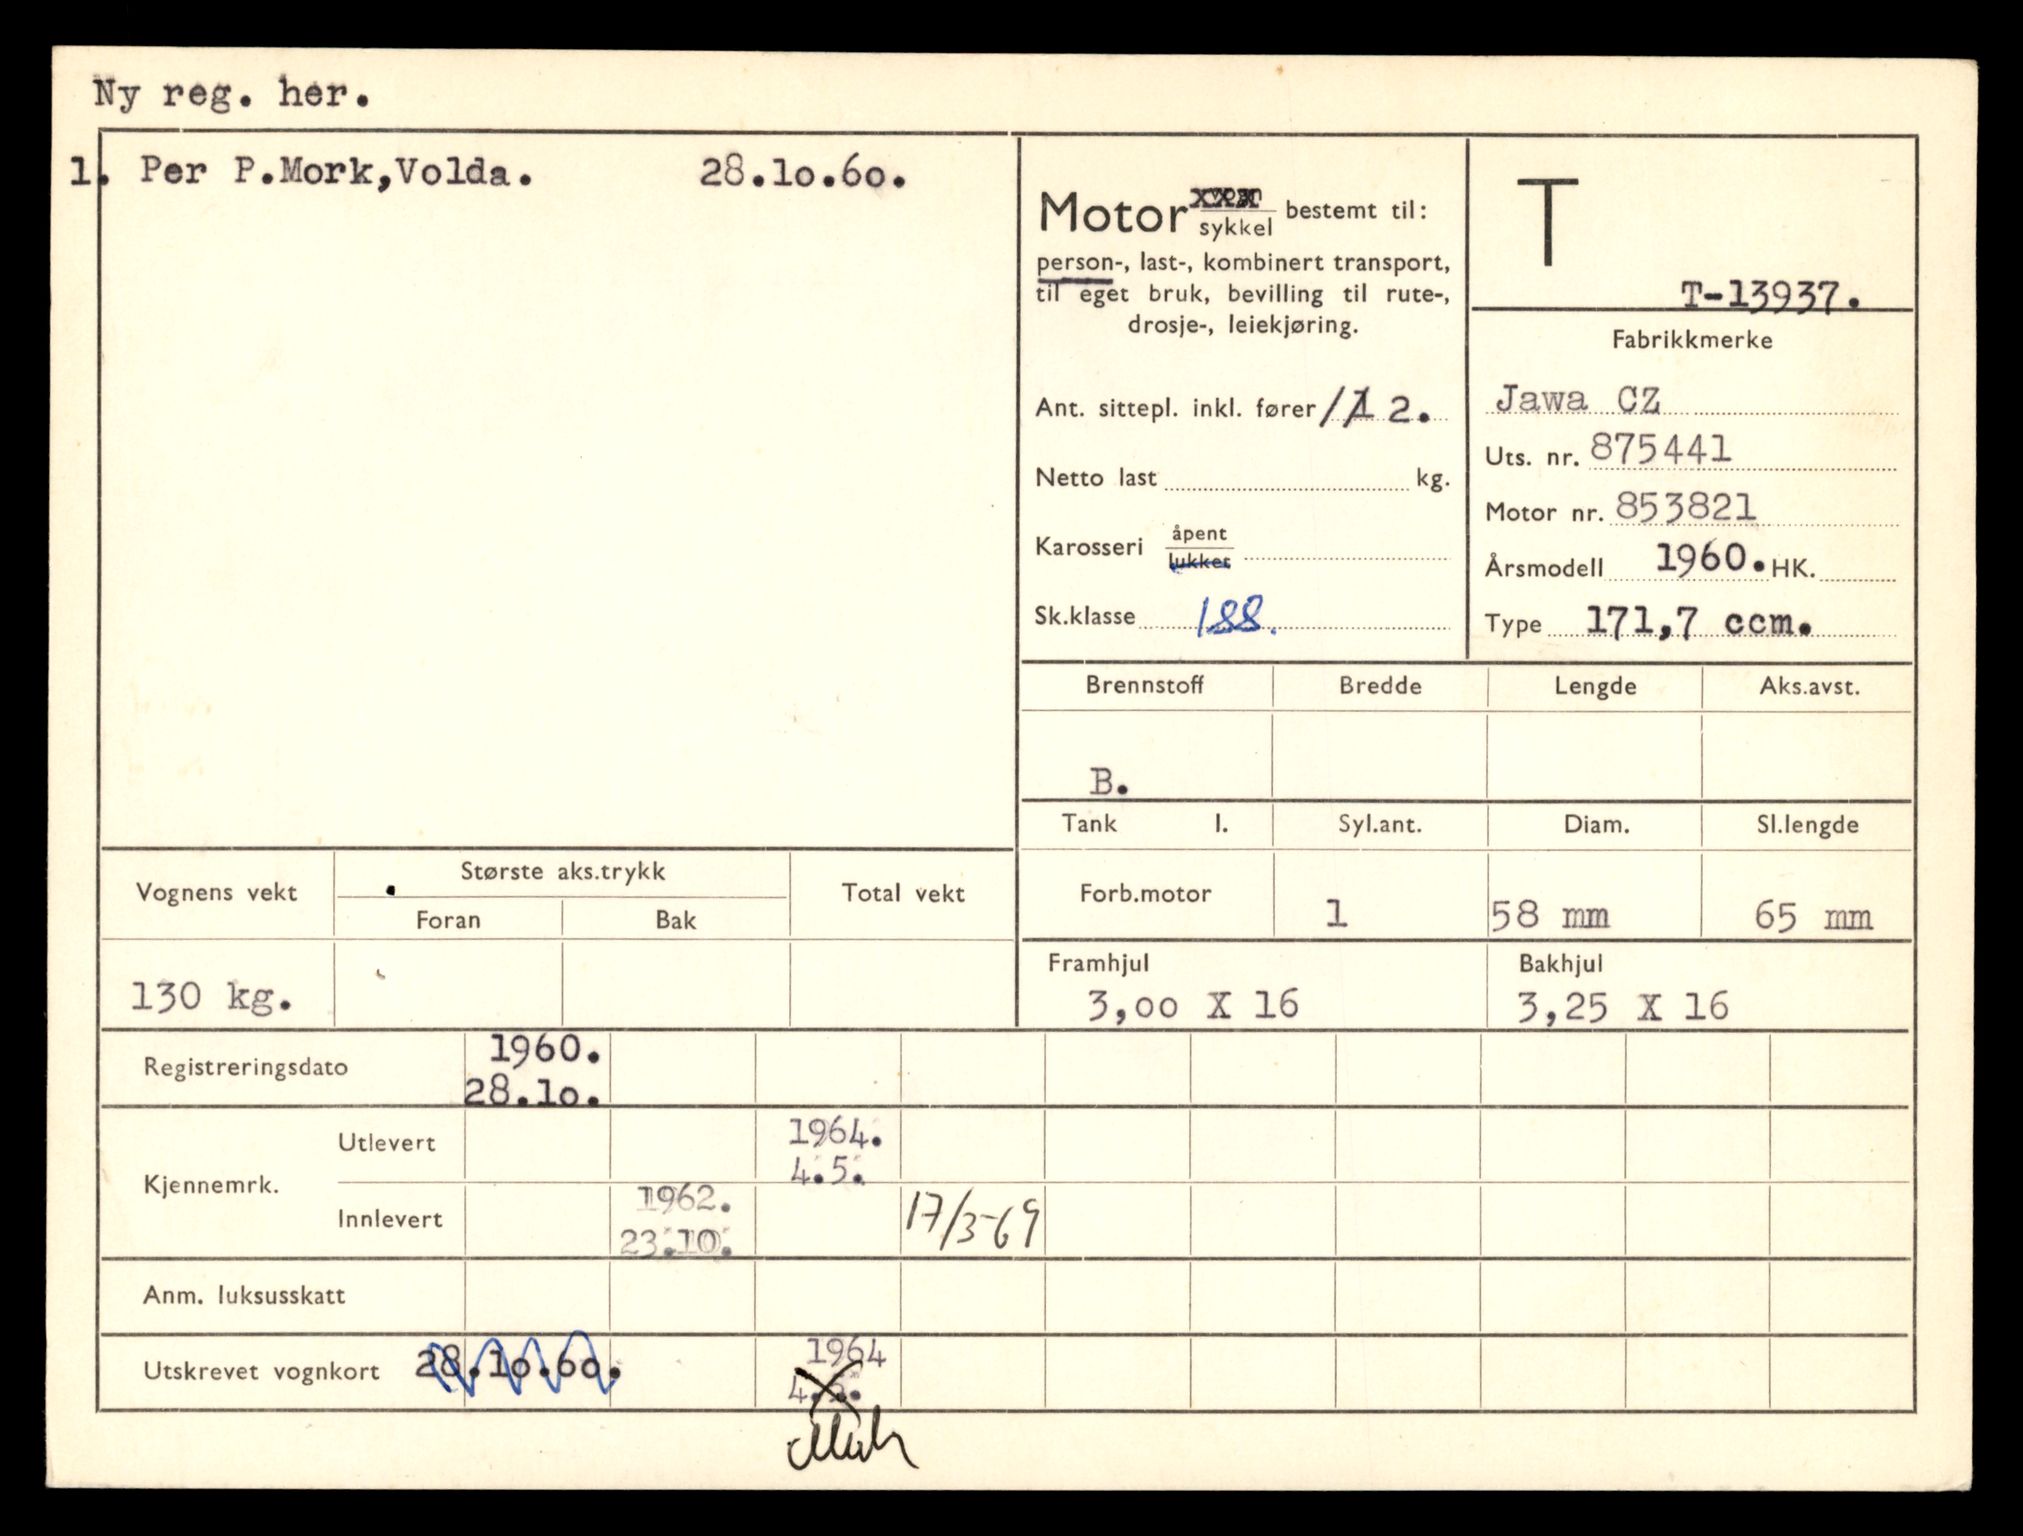 Ny reg. her.
1. Per P.Mork,Volda. 28.10.60.
Motor xxx sykkel bestemt til:
person-, last-, kombinert transport,
til eget bruk, bevilling til rute-,
drosje-, leiekjøring.
Ant. sittepl. inkl. fører /1 2.
Netto last kg.
Karosseri åpent
lukket
Sk.klasse 188.
T
T-13937.
Fabrikkmerke
Jawa CZ
Uts. nr. 875441
Motor nr. 853821
Årsmodell 1960. HK.
Type 171,7 ccm.
Brennstoff Bredde Lengde Aks.avst.
B.
Tank l. Syl.ant. Diam. Sl.lengde
Forb.motor 1 58 mm 65 mm
Framhjul Bakhjul
3,00 X 16 3,25 X 16
Vognens vekt Største aks.trykk Total vekt
Foran Bak
130 kg.
Registreringsdato 1960.
28.10.
Kjennemrk. Utlevert 1964.
4.5.
Innlevert 1962. 17/3-69
23.10.
Anm. luksusskatt
Utskrevet vognkort 28.10.60. 1964
4.5.